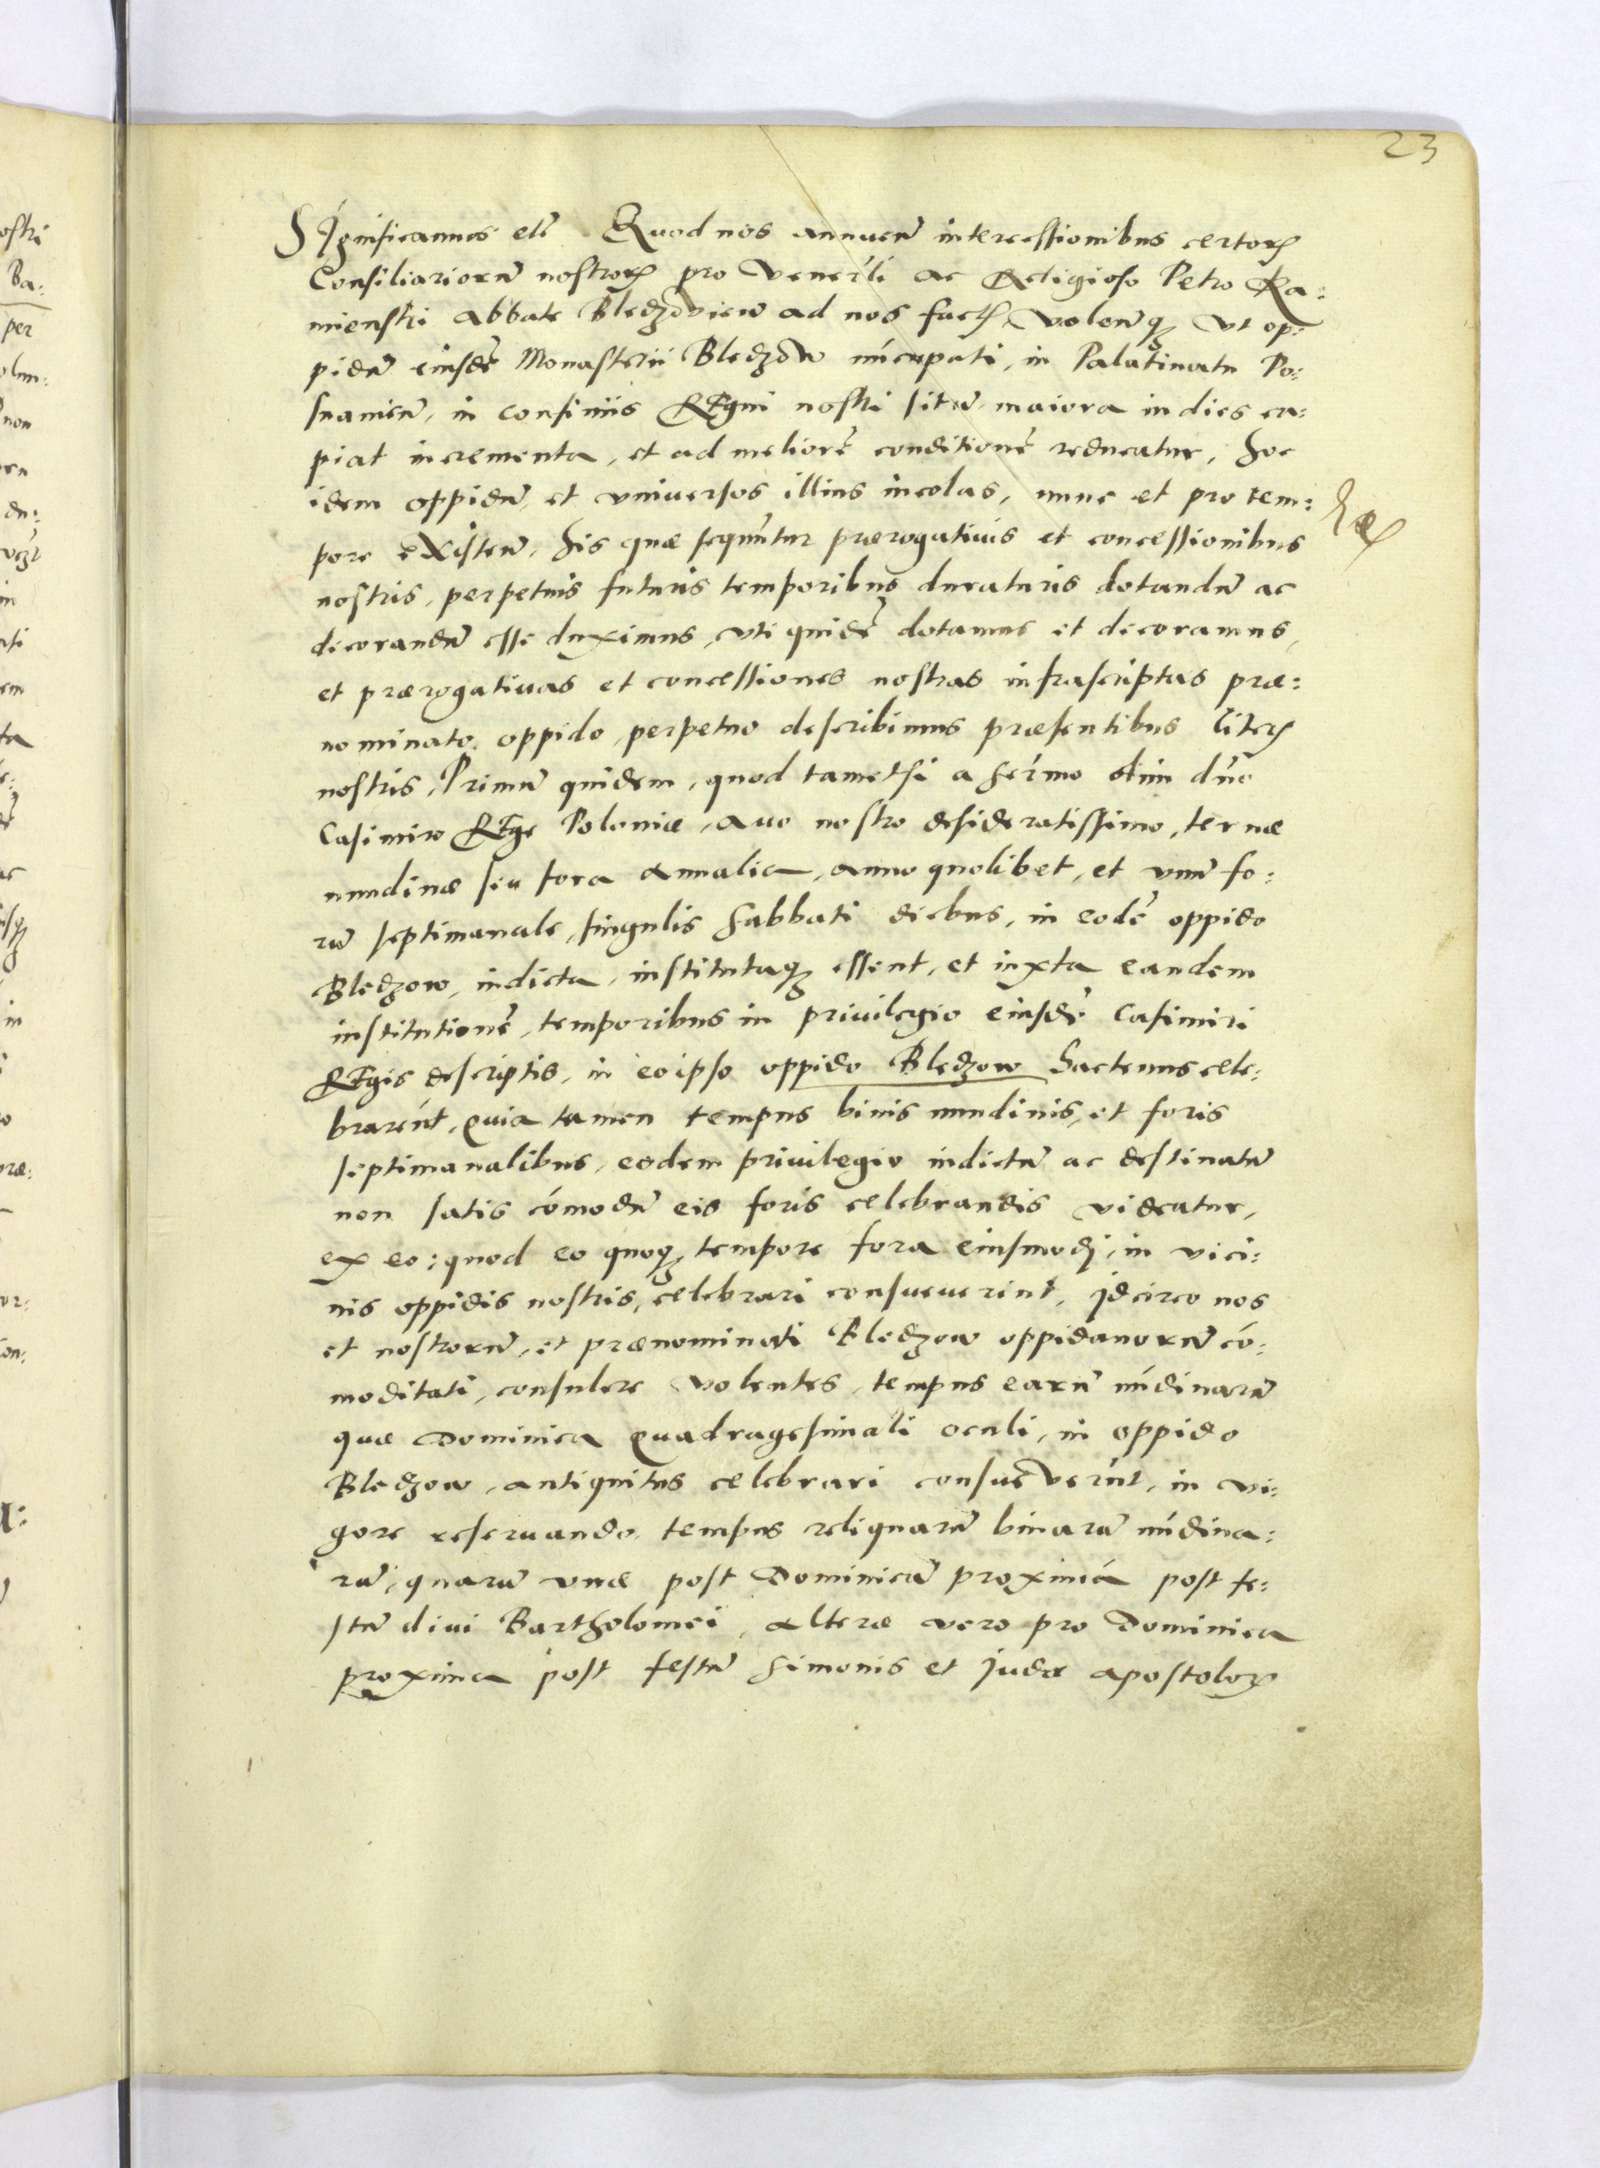 23
SIgnificamus etc̃ Quod nos annueñ intercessionibus certorꝫ
Consiliariorũ nostrorꝫ pro Venerli ac Religioso Petro Ka⸗
mienski Abbate Bledzovieñ ad nos factꝫ, volenꝗꝫ vt op⸗
pidũ eiusdẽ Monasterii Bledzow nũcupati, in Palatinatu Po⸗
snanieñ, in confiniis Regni nostri sitũ maiora indies ca⸗
piat incrementa, et ad meliorẽ conditionẽ reducatur, hoc
idem oppidũ et vniuersos illius incolas, nunc et pro tem⸗
pore existeñ, his quæ sequũtur prærogatiuis et concessionibus
nostris, perpetuis futuris temporibus duraturis dotandũ ac
decorandũ esse duximus, vti quidẽ dotamus et decoramus,
et prærogatiuas et concessiones nostras infrascriptas præ⸗
nominato oppido perpetuo describimus præsentibus literꝫ
nostris, Primũ quidem, quod tametsi a Ser̃mo olim dño
Casimiro Rege Poloniæ, Auo nostro desideratissimo, ternæ
nundinæ seu fora Annalia, anno quolibet, et vnũ fo⸗
rũ septimanale, singulis Sabbati diebus, in eodẽ oppido
Bledzow, indicta, institutaꝗꝫ essent, et iuxta eandem
institutionẽ, temporibus in priuilegio eiusdẽ Casimiri
Regis descriptis, in eo ipso oppido Bledzow hactenus cele⸗
brarẽnt, quia tamen tempus binis nundinis, et foris
septimanalibus, eodem priuilegio indictũ ac destinatũ
non satis cõmodũ eis foris celebrandis videatur,
ex eo: quod eo quoꝗꝫ tempore fora eiusmodi, in vici⸗
nis oppidis nostris, celebrari consueuerint, Idcirco nos
et nostrorũ, et prænominati Bledzow oppidanorũ cõ⸗
moditati, consulere volentes, tempus earũ nũdinarũ
quæ Dominica Quadragesimali Oculi, in oppido
Bledzow, antiquitus celebrari consueverũt, in vi⸗
gore reseruando, tempus reliquarũ binarũ nũdina⸗
rũ, quarũ vnæ post Dominicũ proximã post fe⸗
stũ diui Bartholomei, Alteræ vero pro Dominica
proxima post festũ Simonis et Judæ apostolorꝫ